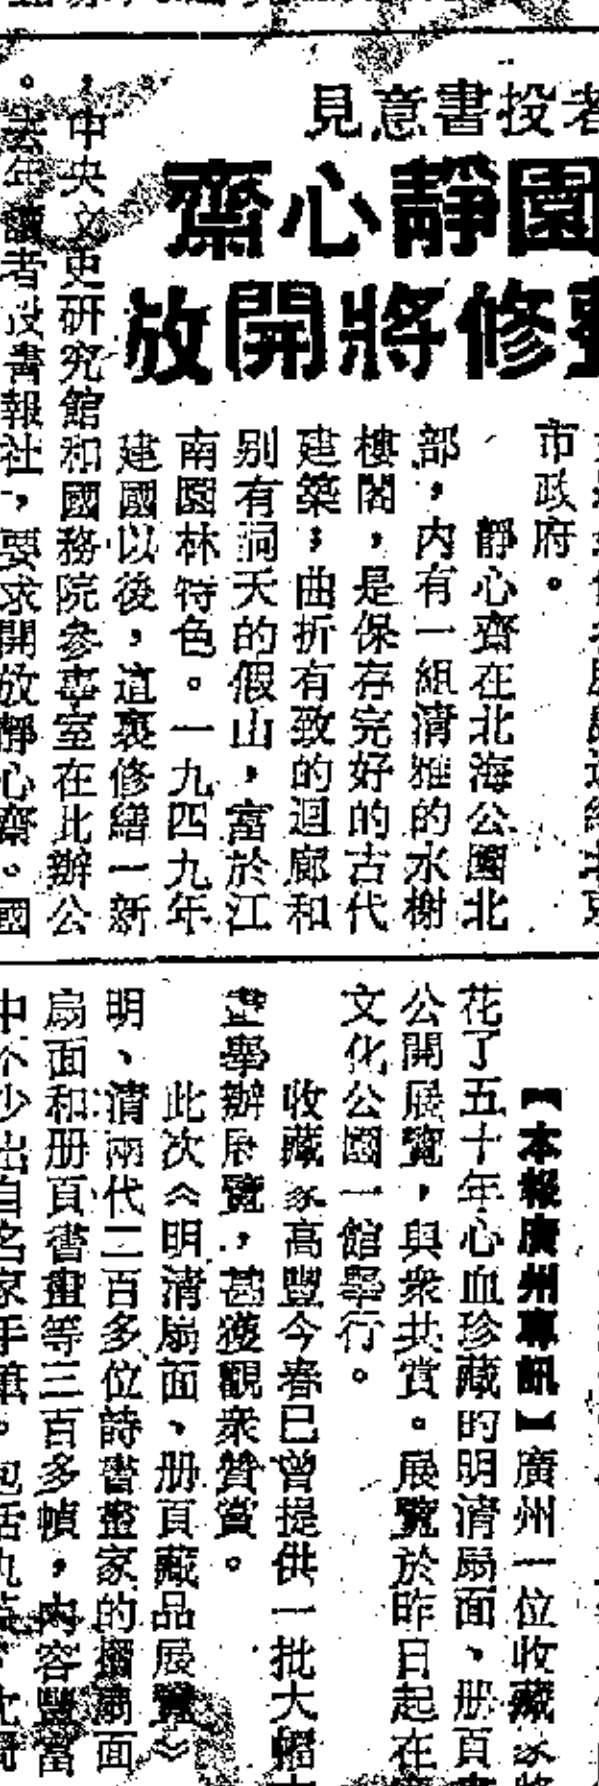 者投書意見
園靜心齋
整修將開放
市政府。
靜心齋在北海公園北
部，内有一組清雅的水榭
樓閣，是保存完好的古代
建築；曲折有致的迴廊和
别有洞天的假山，富於江
南園林特色。一九四九年
建國以後，這裏修繕一新
，中央文史研究館和國務院參事室在此辦公
。去年讀者投書報社，要求開放靜心齋。國
【本報廣州專訊】廣州一位收藏家
花了五十年心血珍藏的明清扇面、册頁
公開展覽，與衆共賞。展覽於昨日起在
文化公園一館舉行。
收藏家高豐今春已曾提供一批大幅
畫舉辦展覽，甚獲觀衆贊賞。
此次《明清扇面、册頁藏品展覽》
明、清兩代二百多位詩書畫家的摺扇面
扇面和册頁書畫等三百多幀，内容豐富
中不少出自名家手筆。包括